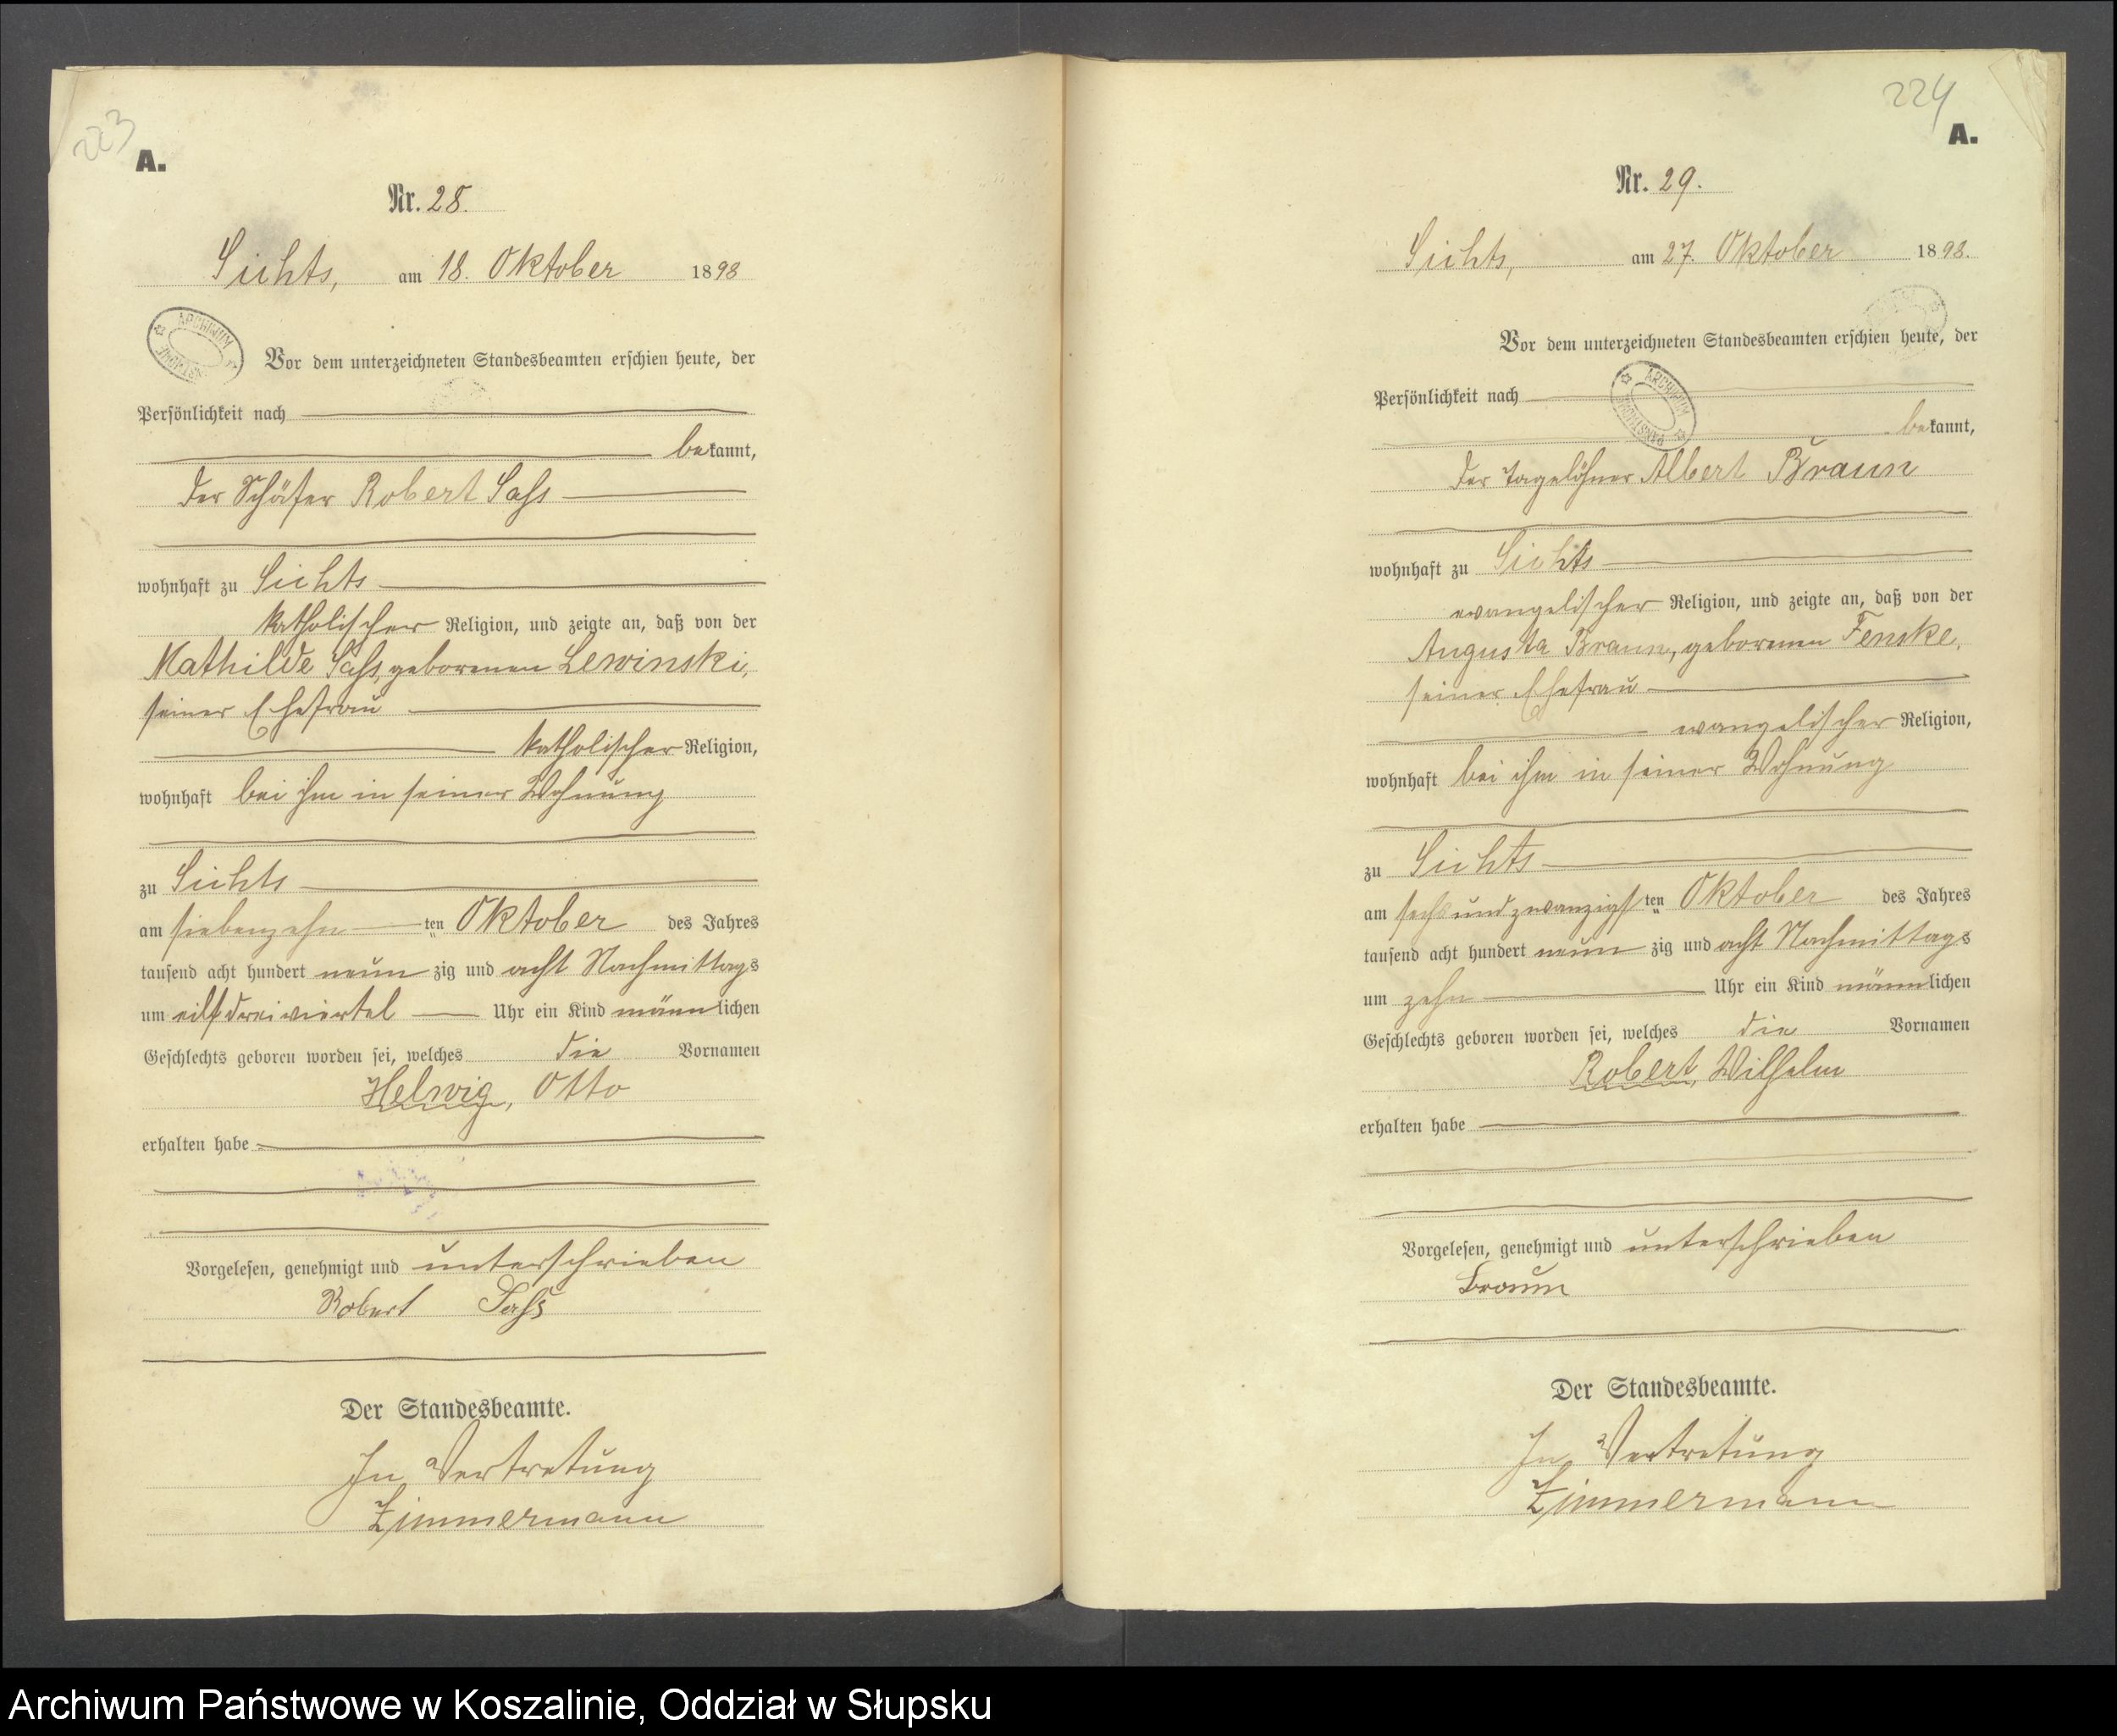 223
A.
Nr. 28.
Sichts, am 18. Oktober 1898
ARCHIWUM
Vor dem unterzeichneten Standesbeamten erschien heute, der
Persönlichkeit nach
bekannt,
der Schäfer Robert Saß
wohnhaft zu Sichts
katholischer Religion, und zeigte an, daß von der
Mathilde Saß, geborenen Lewinski,
seiner Ehefrau
katholischer Religion,
wohnhaft bei ihm in seiner Wohnung
zu Sichts
am siebenzehn ten Oktober des Jahres
tausend acht hundert neun zig und acht Nachmittags
um eilf dreiviertel Uhr ein Kind männlichen
Geschlechts geboren worden sei, welches die Vornamen
Helwig, Otto
erhalten habe
Vorgelesen, genehmigt und unterschrieben
Robert Saß
Der Standesbeamte.
In Vertretung
Zimmermann
224
A.
Nr. 29.
Sichts, am 27. Oktober 1898.
Vor dem unterzeichneten Standesbeamten erschien heute, der
ARCHIWUM PAŃSTWOWE
Persönlichkeit nach
bekannt,
der Tagelöhner Albert Braun
wohnhaft zu Sichts
evangelischer Religion, und zeigte an, daß von der
Augusta Braun, geborenen Fenske,
seiner Ehefrau
evangelischer Religion,
wohnhaft bei ihm in seiner Wohnung
zu Sichts
am sechsundzwanzigsten Oktober des Jahres
tausend acht hundert neun zig und acht Nachmittags
um zehn Uhr ein Kind männlichen
Geschlechts geboren worden sei, welches die Vornamen
Robert, Wilhelm
erhalten habe
Vorgelesen, genehmigt und unterschrieben
Braun
Der Standesbeamte.
In Vertretung
Zimmermann
Archiwum Państwowe w Koszalinie, Oddział w Słupsku